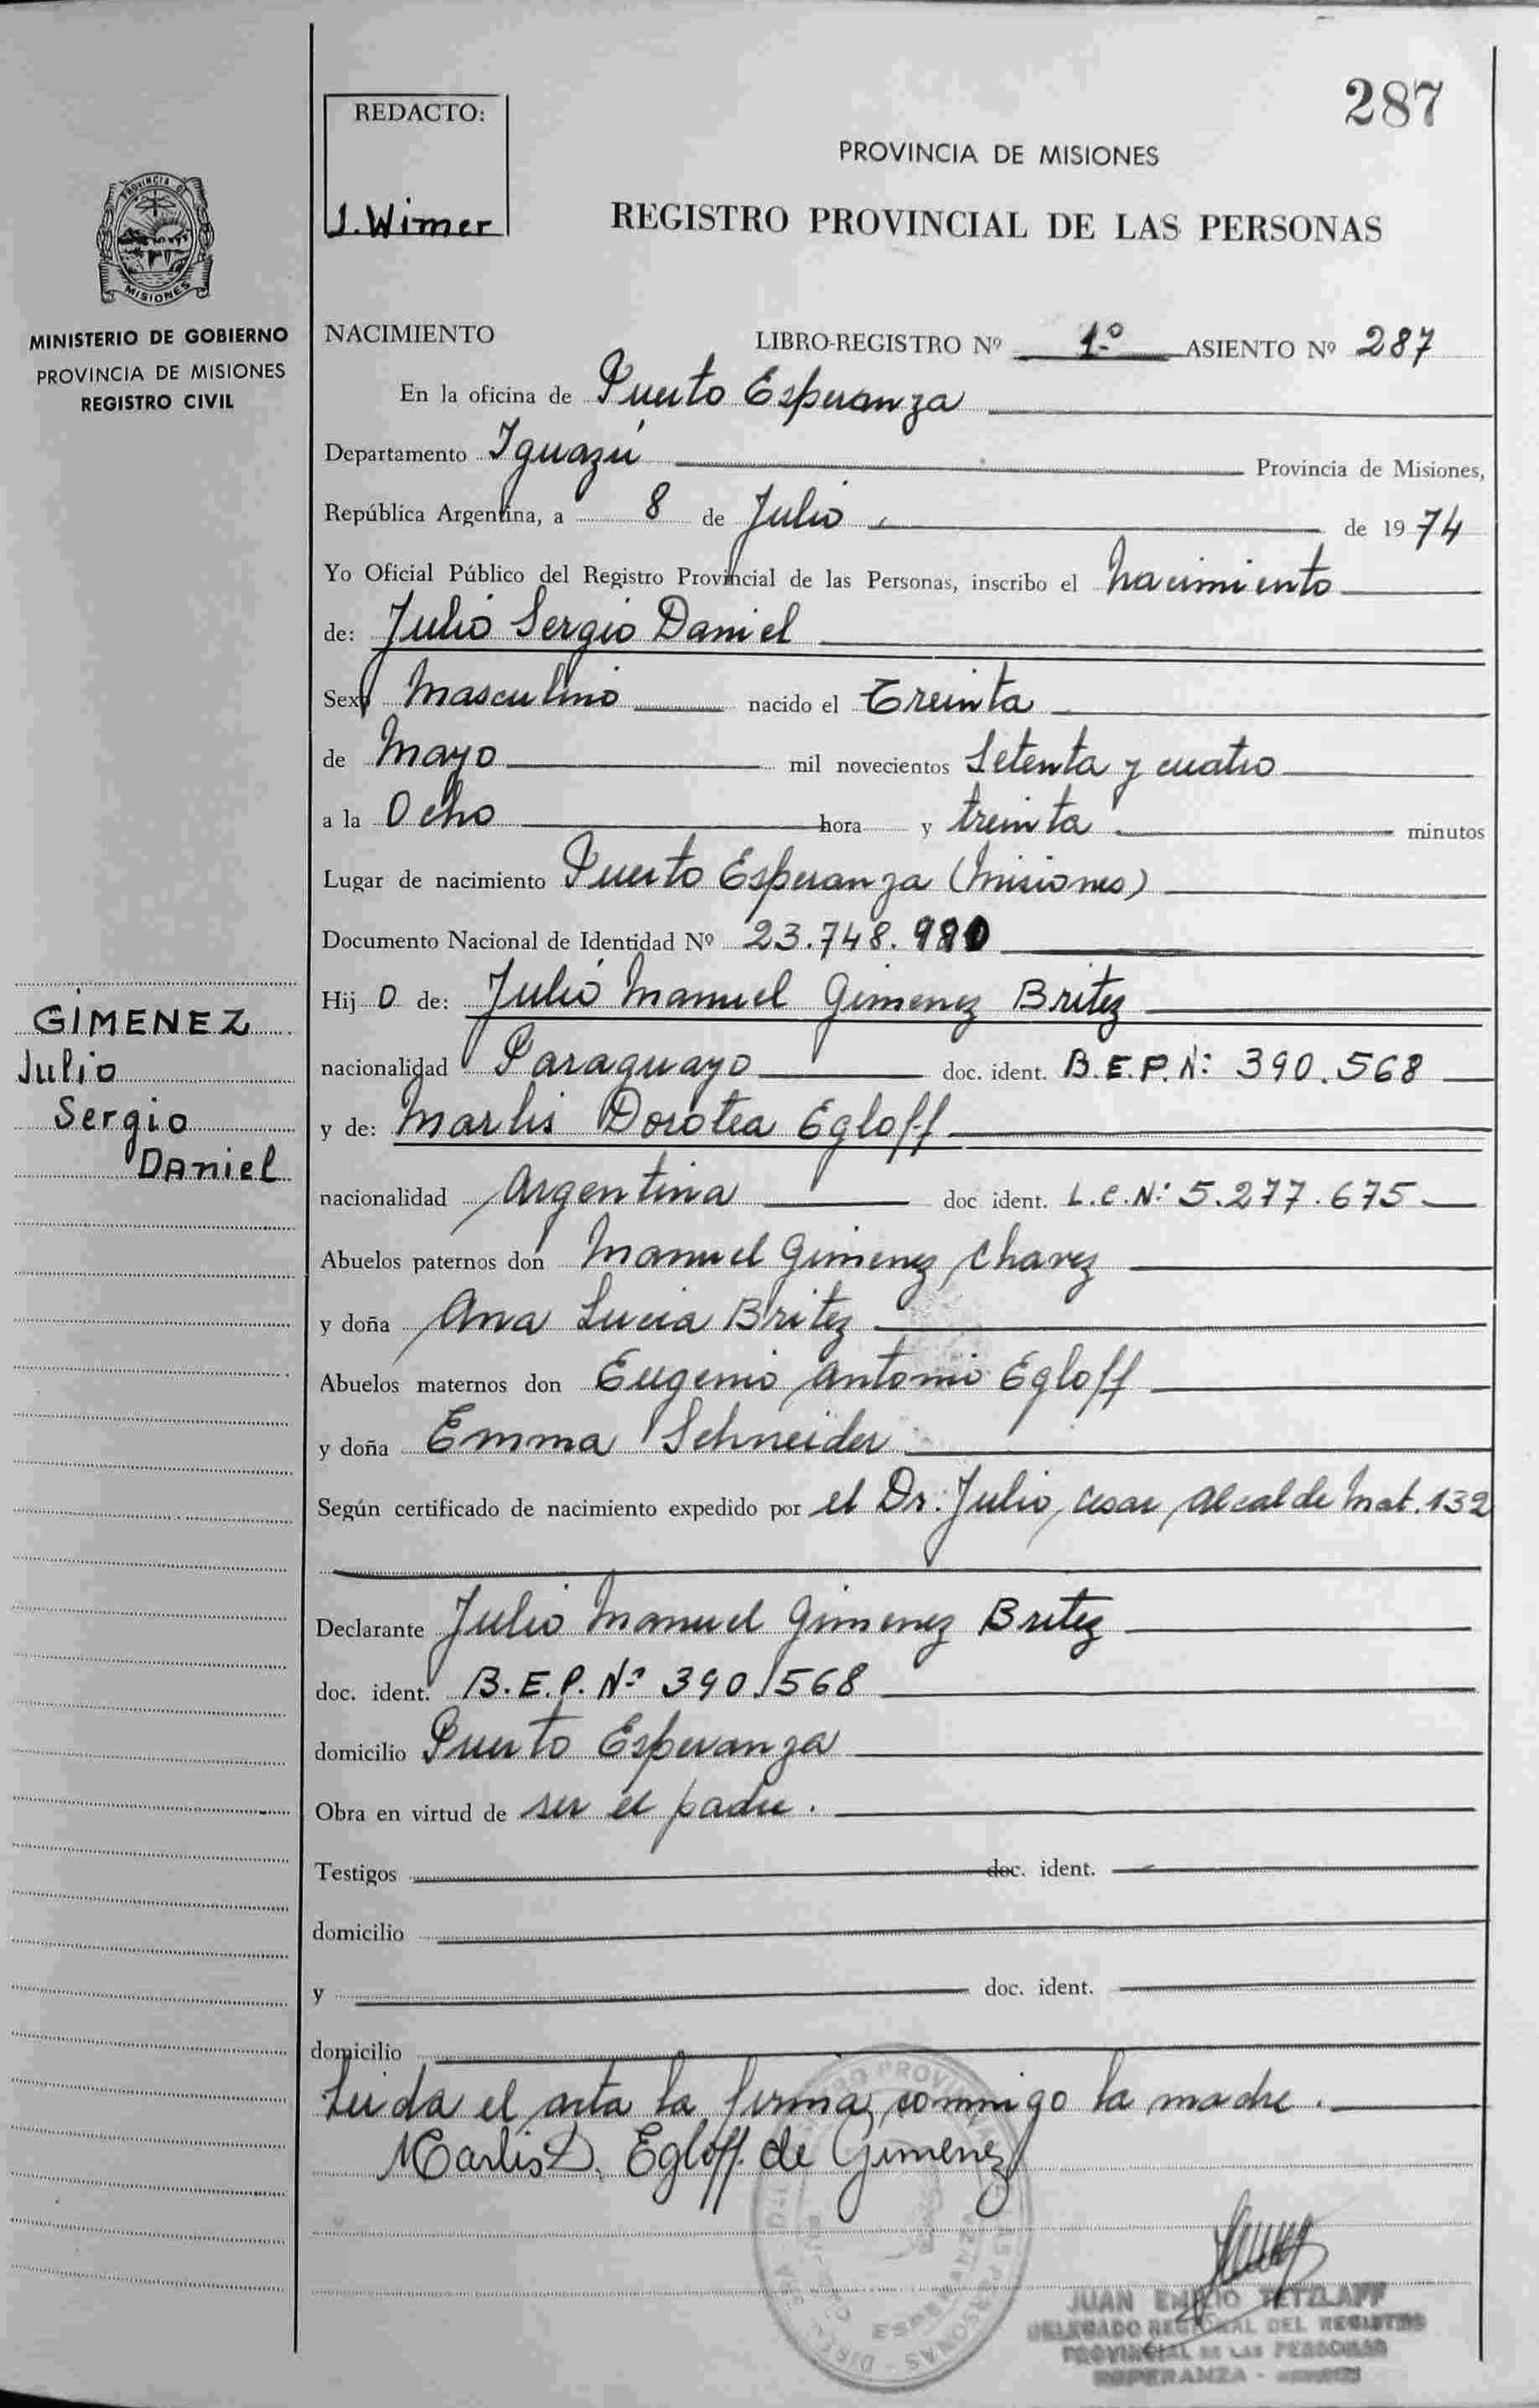 287
REDACTO:
J. Wimer
PROVINCIA DE MISIONES
REGISTRO PROVINCIAL DE LAS PERSONAS
PROVINCIA DE
MISIONES
MINISTERIO DE GOBIERNO
PROVINCIA DE MISIONES
REGISTRO CIVIL
NACIMIENTO LIBRO-REGISTRO Nº 1º ASIENTO Nº 287
En la oficina de Puerto Esperanza
Departamento Iguazú Provincia de Misiones,
República Argentina, a 8 de Julio de 1974
Yo Oficial Público del Registro Provincial de las Personas, inscribo el nacimiento
de: Julio Sergio Daniel
Sexo Masculino nacido el Treinta
de Mayo mil novecientos Setenta y cuatro
a la Ocho hora y treinta minutos
Lugar de nacimiento Puerto Esperanza (Misiones)
Documento Nacional de Identidad Nº 23.748.980
GIMENEZ
Julio
Sergio
DAniel
Hij o de: Julio Manuel Gimenez Britez
nacionalidad Paraguayo doc. ident. B.E.P. Nº: 390.568
y de: Marlis Dorotea Egloff
nacionalidad Argentina doc ident. L.C.Nº: 5.277.675
Abuelos paternos don Manuel Gimenez Chavez
y doña Ana Lucia Britez
Abuelos maternos don Eugenio Antonio Egloff
y doña Emma Schneider
Según certificado de nacimiento expedido por el Dr. Julio Cesar Alcalde Mat. 132
Declarante Julio Manuel Gimenez Britez
doc. ident. B.E.P. Nº 390.568
domicilio Puerto Esperanza
Obra en virtud de ser el padre.
Testigos doc. ident.
domicilio
y doc. ident.
domicilio
Leida el acta la firma conmigo la madre.
Marlis D. Egloff de Gimenez
JUAN EMILIO TETZLAFF
DELEGADO REGIONAL DEL REGISTRO
PROVINCIAL DE LAS PERSONAS
ESPERANZA -